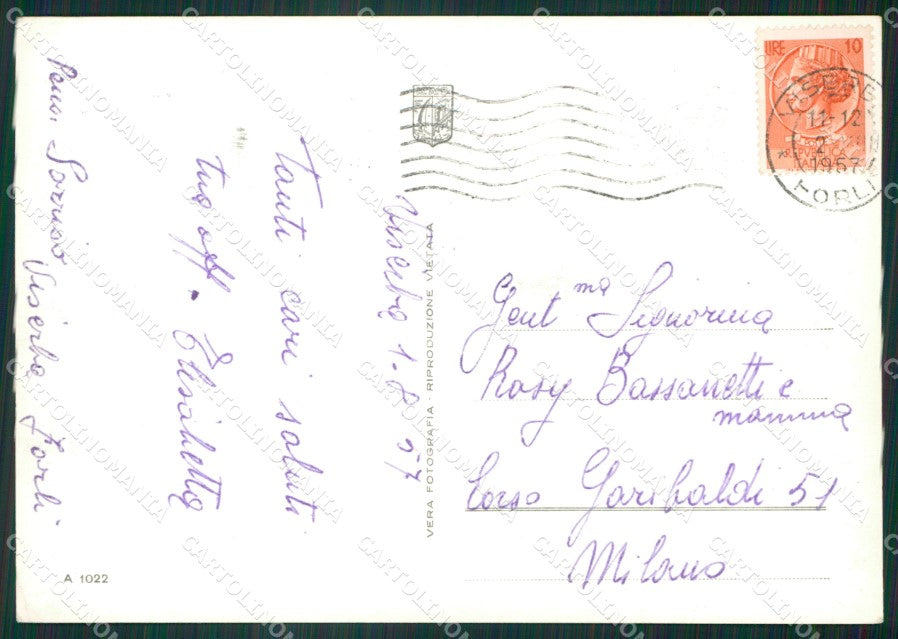 Viserba 1-8-57
Tanti cari saluti
tua aff. Elisabetta
Pens. Sorriso Viserba Forlì
VERA FOTOGRAFIA - RIPRODUZIONE VIETATA
A 1022
LIRE 10
11-12
1957
FORLI
REPVBBLICA
Gent ma Signorina
Rosy Bassanetti e
mamma
Corso Garibaldi 51
Milano
CARTOLINOMANIA